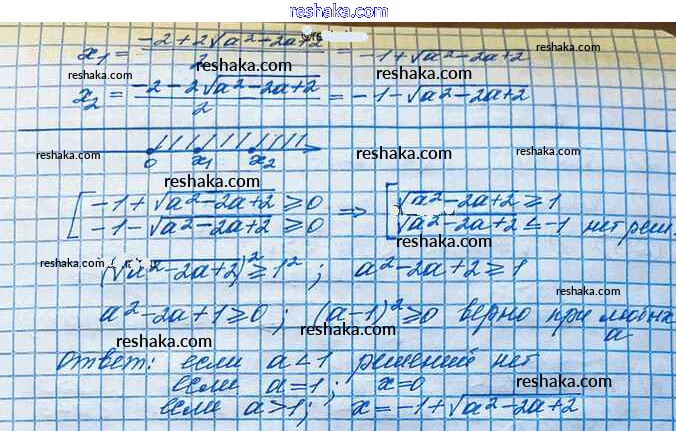 reshaka.com
x₁ = (-2+2√(a²-2a+2))/2 = -1+√(a²-2a+2)
reshaka.com reshaka.com
reshaka.com
x₂ = (-2-2√(a²-2a+2))/2 = -1-√(a²-2a+2)
reshaka.com reshaka.com
reshaka.com reshaka.com
0 x₁ x₂
reshaka.com
[ -1+√(a²-2a+2) ≥ 0 => [ √(a²-2a+2) ≥ 1
-1-√(a²-2a+2) ≥ 0 √(a²-2a+2) ≤ -1 нет реш.
reshaka.com reshaka.com
(√(a²-2a+2))² ≥ 1²; a²-2a+2 ≥ 1
reshaka.com
a²-2a+1 ≥ 0; (a-1)² ≥ 0 верно при любых a
reshaka.com reshaka.com
Ответ: если a<1 решений нет
если a=1; x=0
reshaka.com reshaka.com
если a>1; x=-1+√(a²-2a+2)
reshaka.com